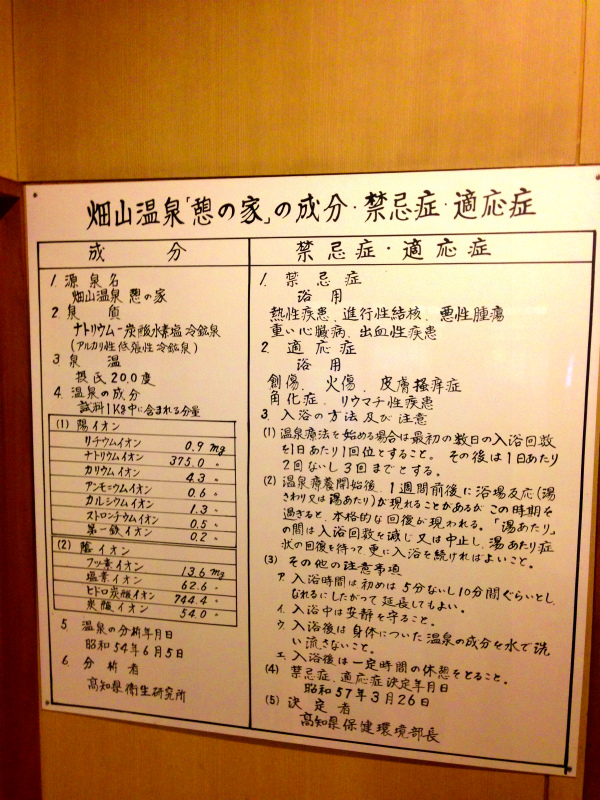 畑山温泉「憩の家」の成分・禁忌症・適応症
成分
1. 源泉名
畑山温泉 憩の家
2. 泉質
ナトリウム-炭酸水素塩冷鉱泉
(アルカリ性低張性冷鉱泉)
3 泉温
摂氏20.0度
4. 温泉の成分
試料1Kg中に含まれる分量
(1) 陽イオン
リチウムイオン 0.9 mg
ナトリウムイオン 375.0 〃
カリウムイオン 4.3 〃
アンモニウムイオン 0.6 〃
カルシウムイオン 1.3 〃
ストロンチウムイオン 0.5 〃
第一鉄イオン 0.2 〃
(2) 陰イオン
フッ素イオン 13.6 mg
塩素イオン 62.6 〃
ヒドロ炭酸イオン 744.4 〃
炭酸イオン 54.0 〃
5. 温泉の分析年月日
昭和54年6月5日
6. 分析者
高知県衛生研究所
禁忌症・適応症
1. 禁忌症
浴用
熱性疾患、進行性結核、悪性腫瘍
重い心臓病、出血性疾患
2. 適応症
浴用
創傷、火傷、皮膚掻痒症
角化症、リウマチ性疾患
3. 入浴の方法及び注意
(1) 温泉療法を始める場合は最初の数日の入浴回数
を1日あたり1回位とすること。その後は1日あたり
2回ないし3回までとする。
(2) 温泉療養開始後、1週間前後に浴場反応(湯
さわり又は湯あたり)が現れることがあるがこの時期を
過ぎると、本格的な回復が現われる。「湯あたり」
の間は入浴回数を減じ又は中止し、湯あたり症
状の回復を待って更に入浴を続ければよいこと。
(3) その他の注意事項
ア. 入浴時間は初めは5分ないし10分間ぐらいとし、
なれるにしたがって延長してもよい。
イ. 入浴中は安静を守ること。
ウ. 入浴後は身体についた温泉の成分を水で洗
い流さないこと。
エ. 入浴後は一定時間の休憩をとること。
(4) 禁忌症、適応症決定年月日
昭和57年3月26日
(5) 決定者
高知県保健環境部長